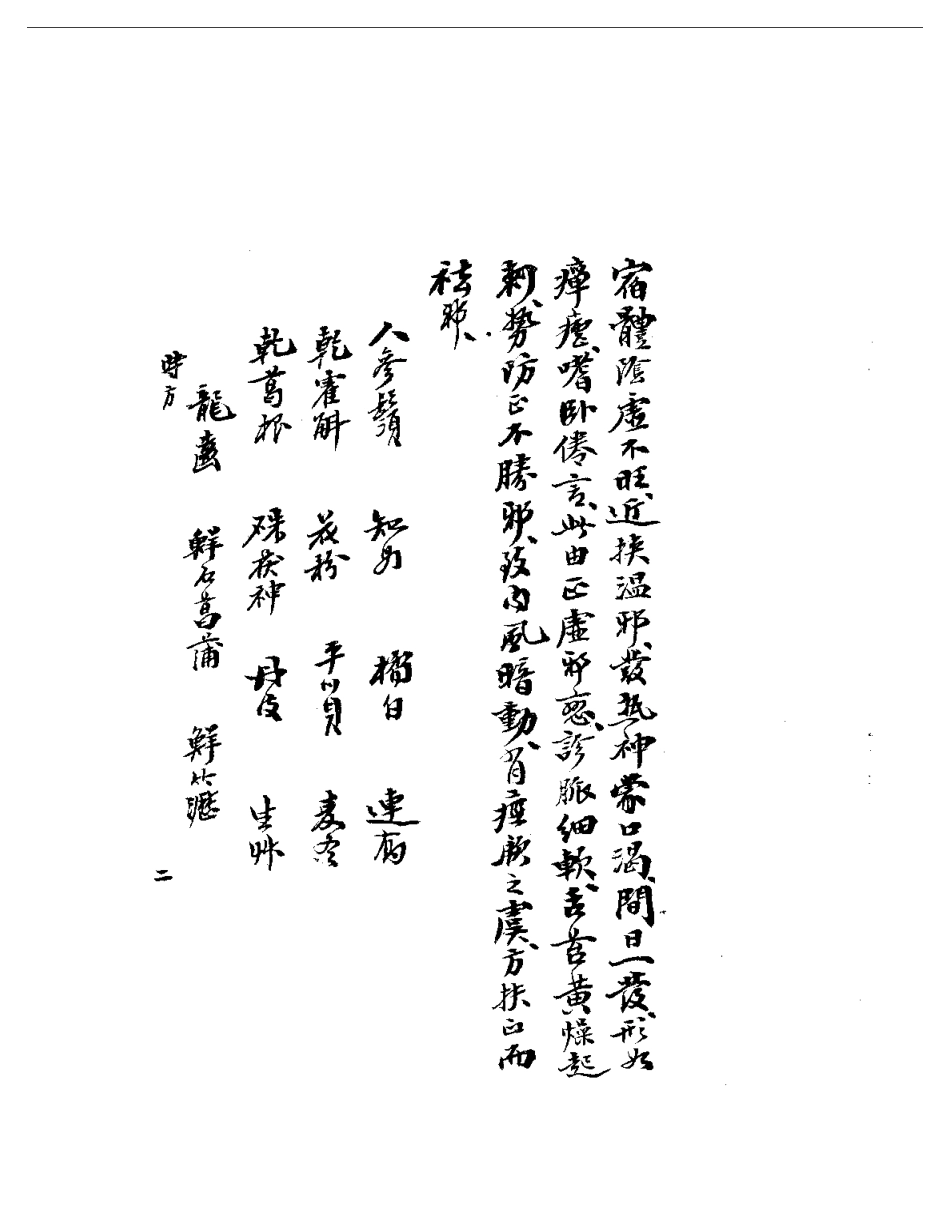 宿體陰虛不旺近挾溫邪發熱神蒙口渴間日一發形如
瘴瘧嗜卧倦言此由正虛邪戀診脈細軟舌苔黃燥起
刺勢防正不勝邪致內風暗動有痙厥之虞方扶正而
祛邪
人參鬚 知母 橘白 連翹
乾霍斛 花粉 平川貝 麦冬
乾葛根 硃茯神 丹皮 生艸
龍齒 鮮石菖蒲 鮮竹瀝
時方 二